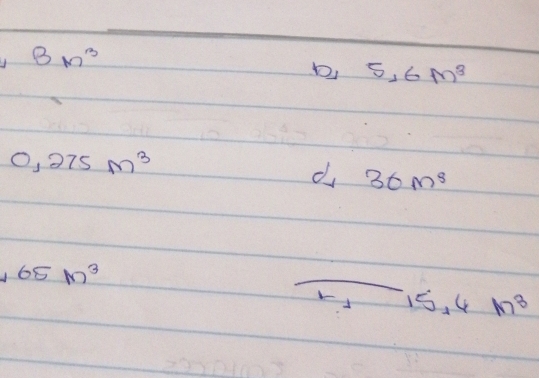 , 8 m³ b, 5,6 m³
0,275 m³ d, 36 m³
, 65 m³ f, 15,4 m³